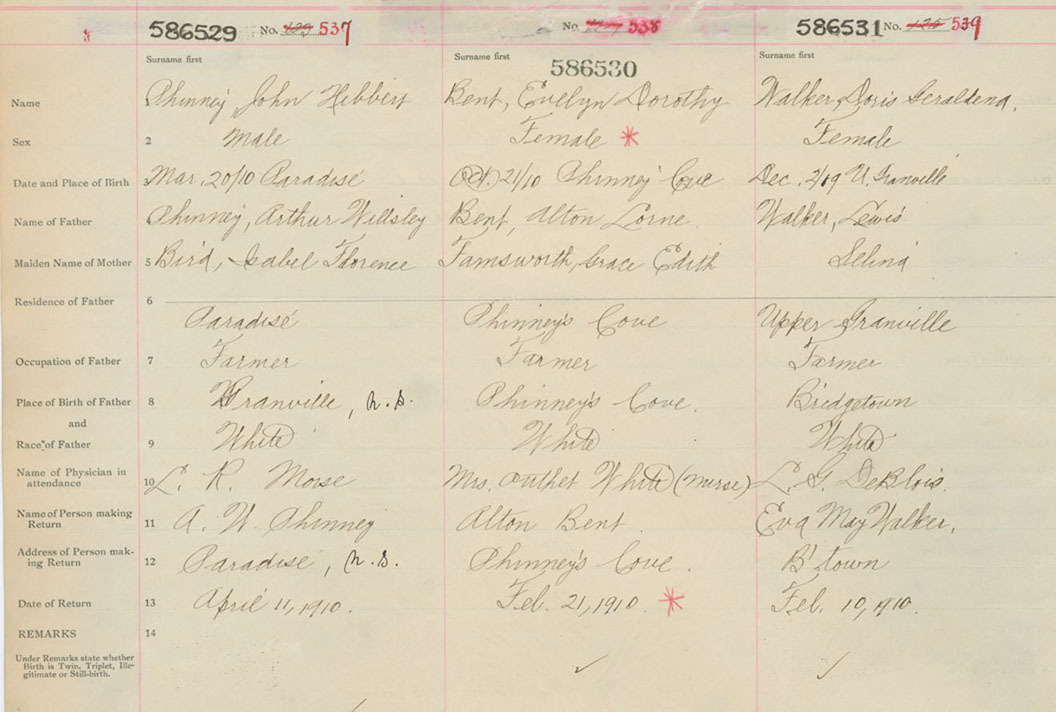 586529 No. 537
No. 538
586531 No. 539
Surname first Surname first Surname first
586530
Name Phinney, John Hibbert Bent, Evelyn Dorothy Walker, Doris Geraldena.
Sex 2 Male Female * Female
Date and Place of Birth Mar. 20/10 Paradise Oct. 21/10 Phinney Cove Dec. 2/09 U. Granville
Name of Father Phinney, Arthur Willsley Bent, Alton Lorne. Walker, Lewis
Maiden Name of Mother 5 Bird, Isabel Florence Farnsworth, Grace Edith Selina
Residence of Father 6
Paradise Phinney's Cove Upper Granville
Occupation of Father 7 Farmer Farmer Farmer
Place of Birth of Father 8 Granville, N.S. Phinney's Cove. Bridgetown
and
Race of Father 9 White White White
Name of Physician in
attendance 10 L. R. Morse Mrs. Outhet White (nurse) L. G. DeBlois.
Name of Person making
Return 11 A. W. Phinney Alton Bent. Eva May Walker,
Address of Person mak-
ing Return 12 Paradise, N.S. Phinney's Cove. B'town
Date of Return 13 April 11, 1910. Feb. 21, 1910. * Feb. 10, 1910.
REMARKS 14
Under Remarks state whether
Birth is Twin, Triplet, Ille-
gitimate or Still-birth.